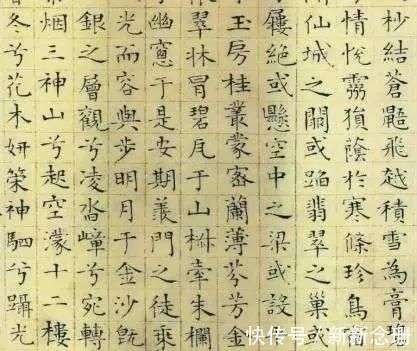 杪結蒼鼯飛越積雪為膏
情悅霧蔭於寒條珍鳥
仙城之闕或蹈翡翠之巢
屨絕或懸空中之梁或設
玉房桂叢蒙密蘭薄芬芳金
翠牀冒碧瓦于山椒牽朱欄
幽窻于是安期羨門之徒乘
光而容與步明月于金沙旣
銀之層觀兮凌沓嶂兮宛轉
烟三神山兮起空濛十二樓
冬兮花木妍策神駟兮躡光
快传号/新新念珊